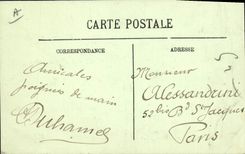 A
CARTE POSTALE
CORRESPONDANCE
ADRESSE
Amicales
poignées de main
Duhamel
Monsieur
Alessandrini
52 bis Bd St Jacques
Paris